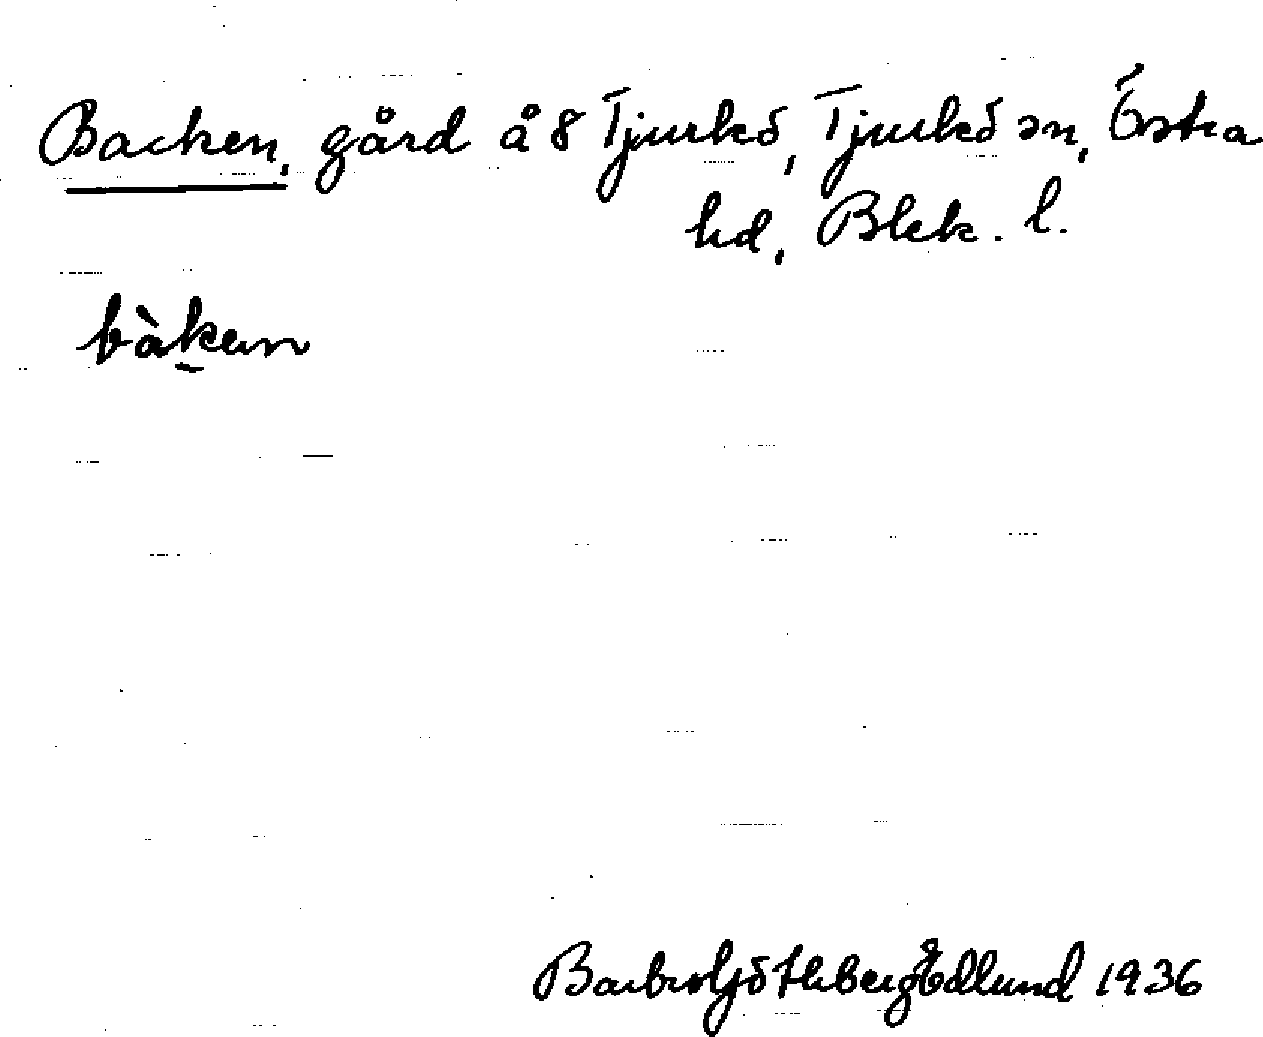 Backen, gård å 8 Tjurkö, Tjurkö sn, Östra
hd, Blek. l.
bàkan
Barbro Göthberg Edlund 1936